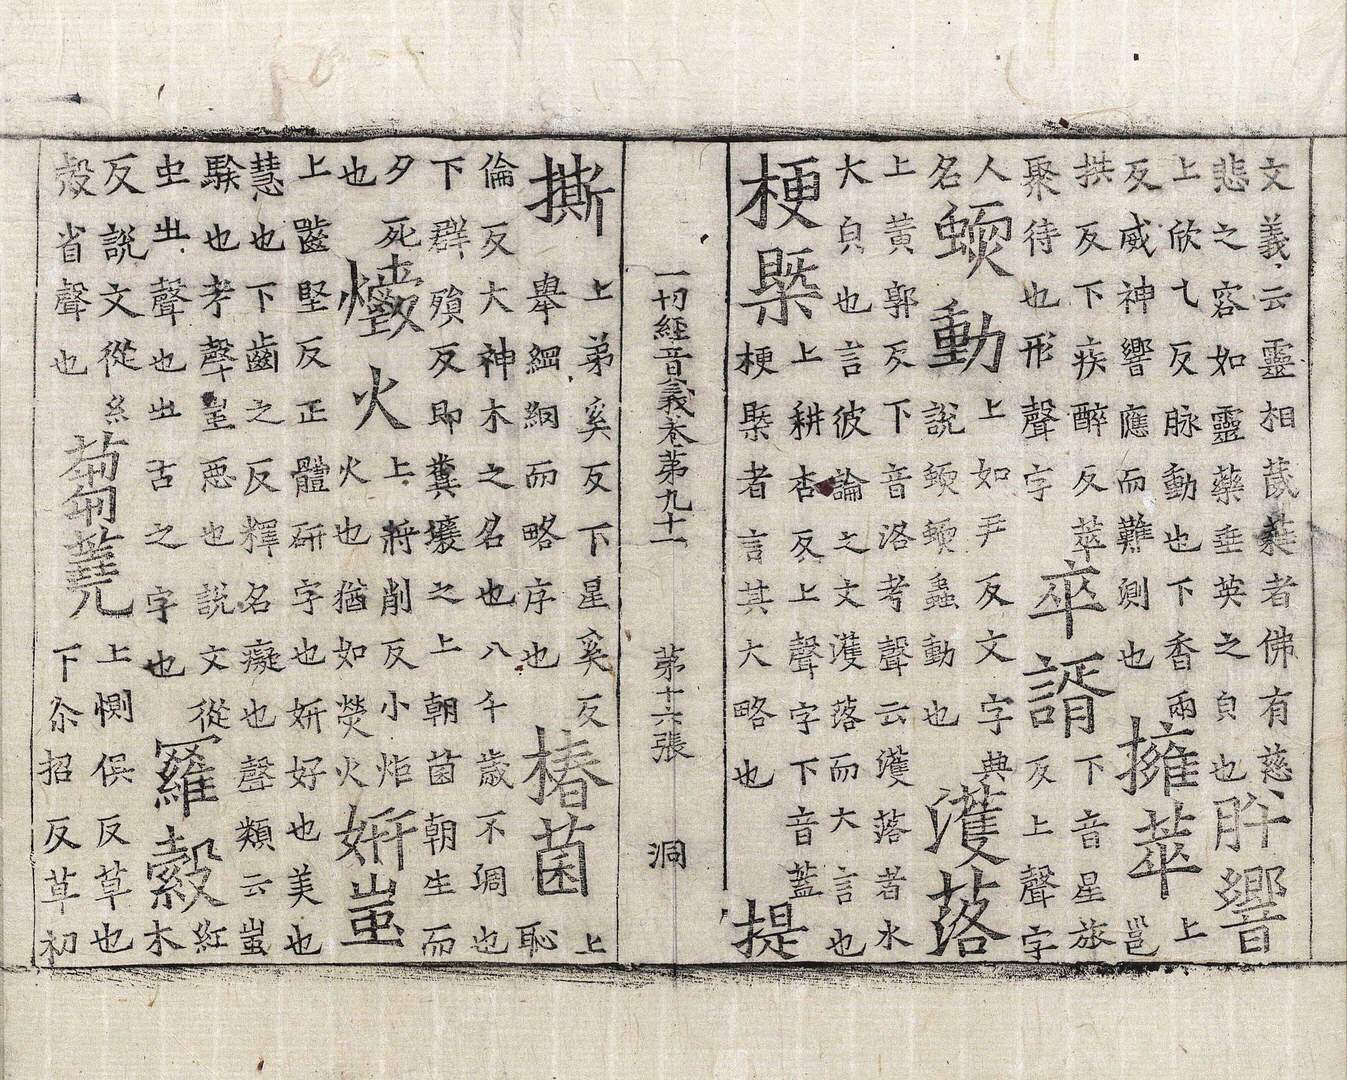 文義云靈相葳蕤者佛有慈
悲之容如靈藥垂英之皃也
肸響
上欣乞反脉動也下香雨
反威神響應而難測也
擁萃
上
邕
拱反下疾醉反萃
聚待也形聲字
卒諝
下音星旅
反上聲字
人
名
蝡動
上如尹反文字典
說蝡蝡蟲動也
濩落
上黃郭反下音洛考聲云濩落者水
大皃也言彼論之文濩落而大言也
梗槩
上耕杏反上聲字下音蓋
梗槩者言其大略也
提
一切經音義卷第九十一 第十六張 洞
撕
上弟奚反下星奚反
舉綱綱而略序也
椿菌
上
恥
倫反大神木之名也八千歲不凋也
下群殞反即糞壤之上朝菌朝生而
夕死
也
爝火
上將削反小炬
火也猶如熒火
妍蚩
上齧堅反正體研字也妍好也美也
慧也下齒之反釋名癡也聲類云蚩
騃也考聲蚩惡也說文從
虫㞢聲也㞢古之字也
羅縠
紅
木
反說文從糸
殼省聲也
蒭蕘
上惻俱反草也
下尒招反草初